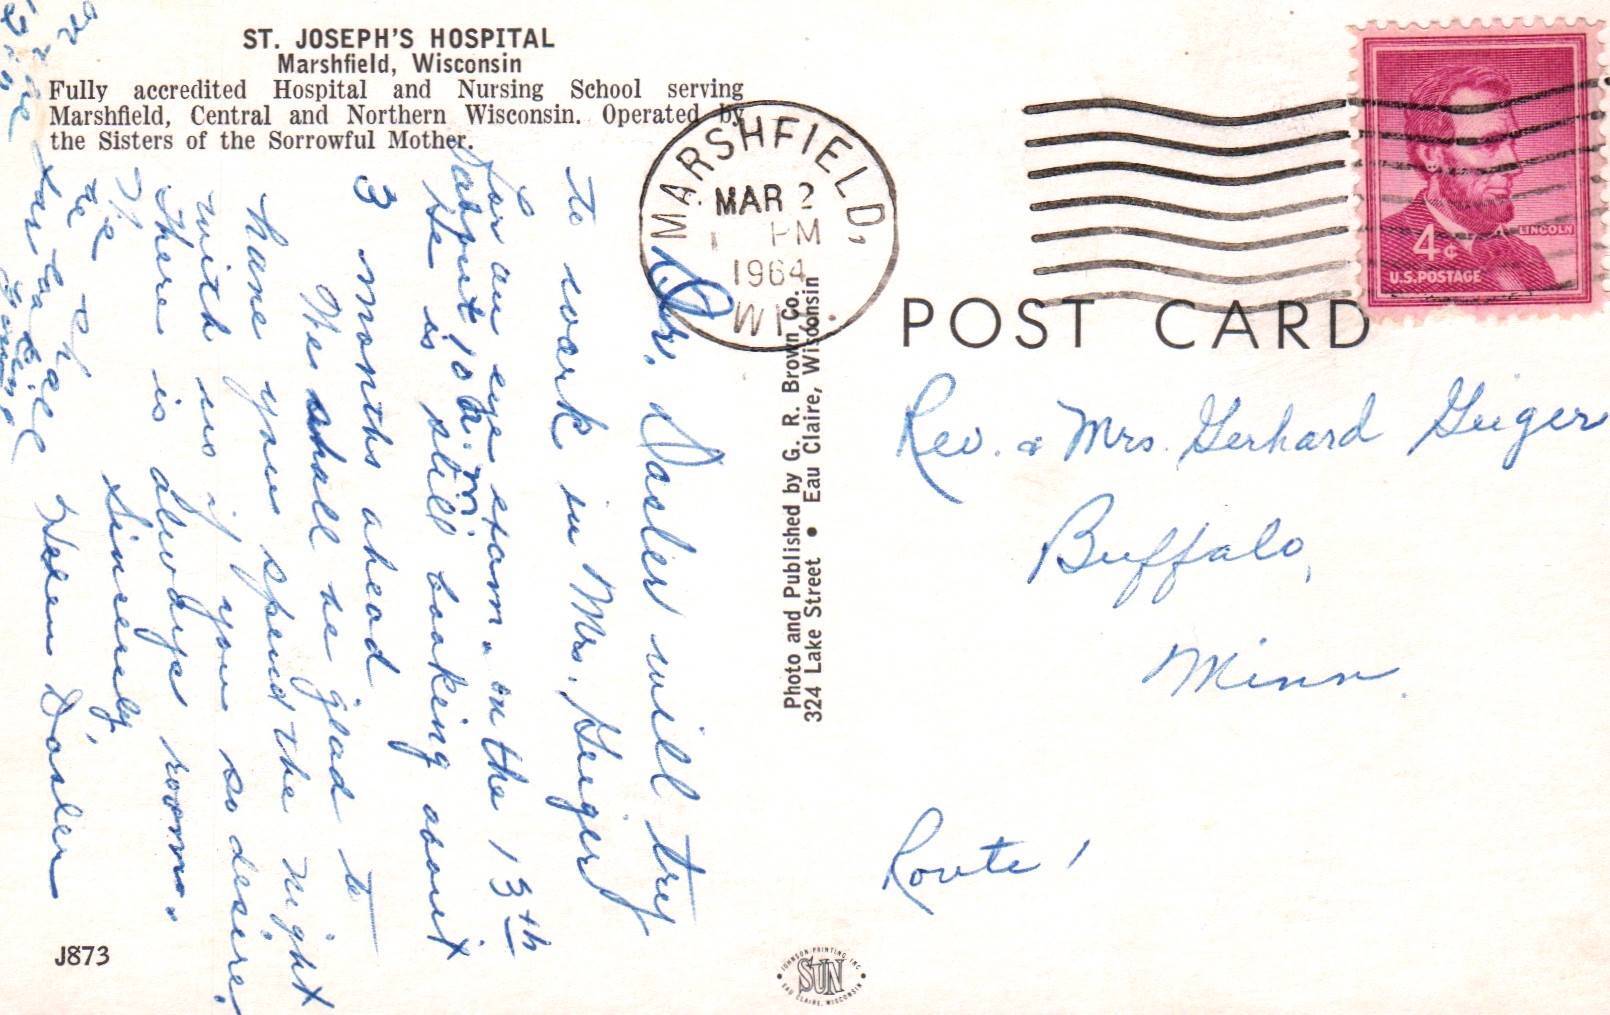 ST. JOSEPH'S HOSPITAL
Marshfield, Wisconsin
Fully accredited Hospital and Nursing School serving
Marshfield, Central and Northern Wisconsin. Operated by
the Sisters of the Sorrowful Mother.
MARSHFIELD,
MAR 2
1 PM
1964
WIS.
LINCOLN
4¢
U.S. POSTAGE
POST CARD
Dr. will try
to work in Mrs. Geiger
for an eye exam. on the 13th
about 10 a.m.
He is still booking about
3 months ahead
We shall be glad to
have you spend the night
with us if you so desire.
There is always room.
Sincerely,
Photo and Published by G. R. Brown Co.
324 Lake Street • Eau Claire, Wisconsin
Rev. & Mrs. Gerhard Geiger
Buffalo,
Minn.
Route 1
J873
JOHNSON PRINTING, INC.
SUN
EAU CLAIRE, WISCONSIN